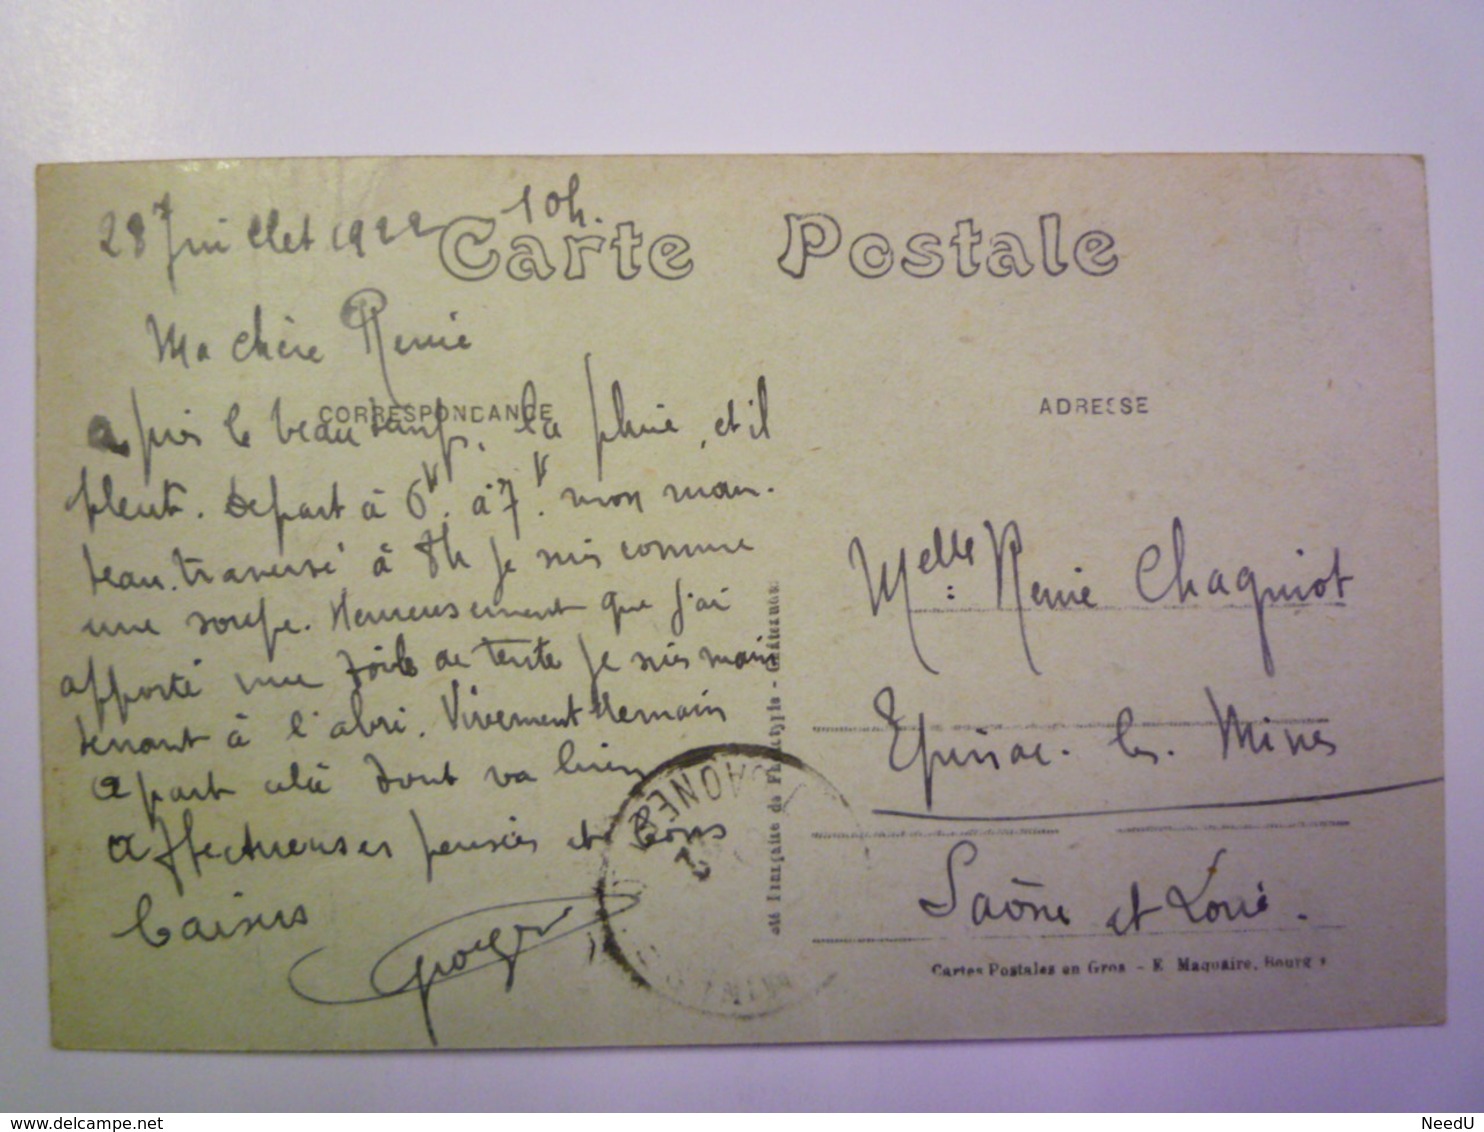 28 Juillet 1922 10h.
Carte Postale
Ma chère Renée
CORRESPONDANCE
Après le beau temps. la pluie, et il
pleut. Départ à 6h. à 7h. mon man-
teau. traversé à 8h je suis comme
une soupe. Heureusement que j'ai
apporté une toile de tente je suis main
tenant à l'abri. Vivement demain
A part cela tout va bien
Affectueuses pensées et bons
baisers
Georges
ADRESSE
Melle: Renée Chaguiot
Epinac. les. Mines
Saône et Loire.
Cartes Postales en Gros - E. Maquaire, Bourges
sté Française de Phototypie - Châteauroux
NeedU